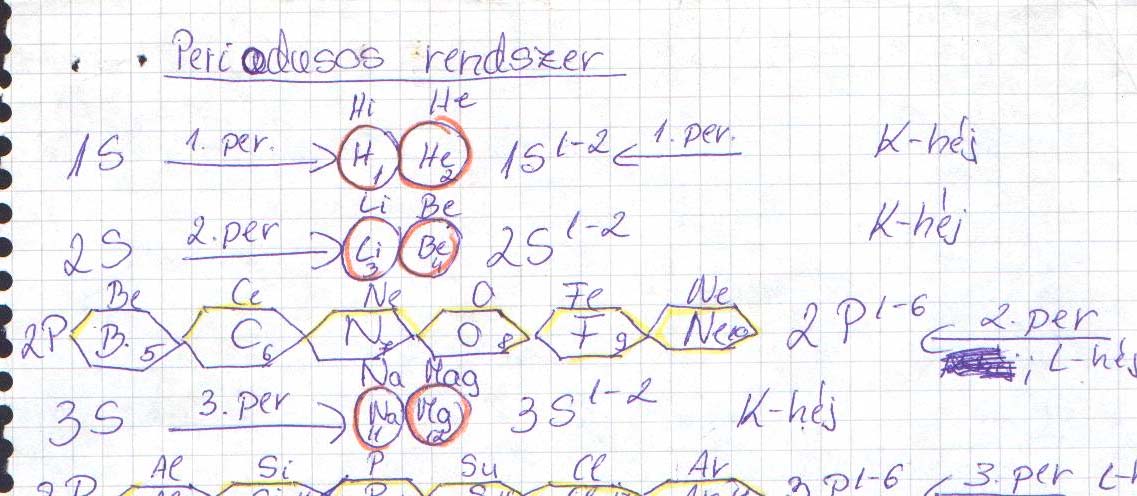 Periodusos rendszer
Hi He
1S 1. per. H 1 He 2 1S 1-2 1. per. K-héj
Li Be
2S 2. per Li 3 Be 4 2S 1-2 K-héj
Be Ce Ne O Fe Ne
2P B. 5 C 6 N 7 O 8 F 9 Ne 10 2P 1-6 2. per
; L-héj
Na Mag
3S 3. per Na 11 Mg 12 3S 1-2 K-héj
Al Si P Su Cl Ar
3P 1-6 3. per